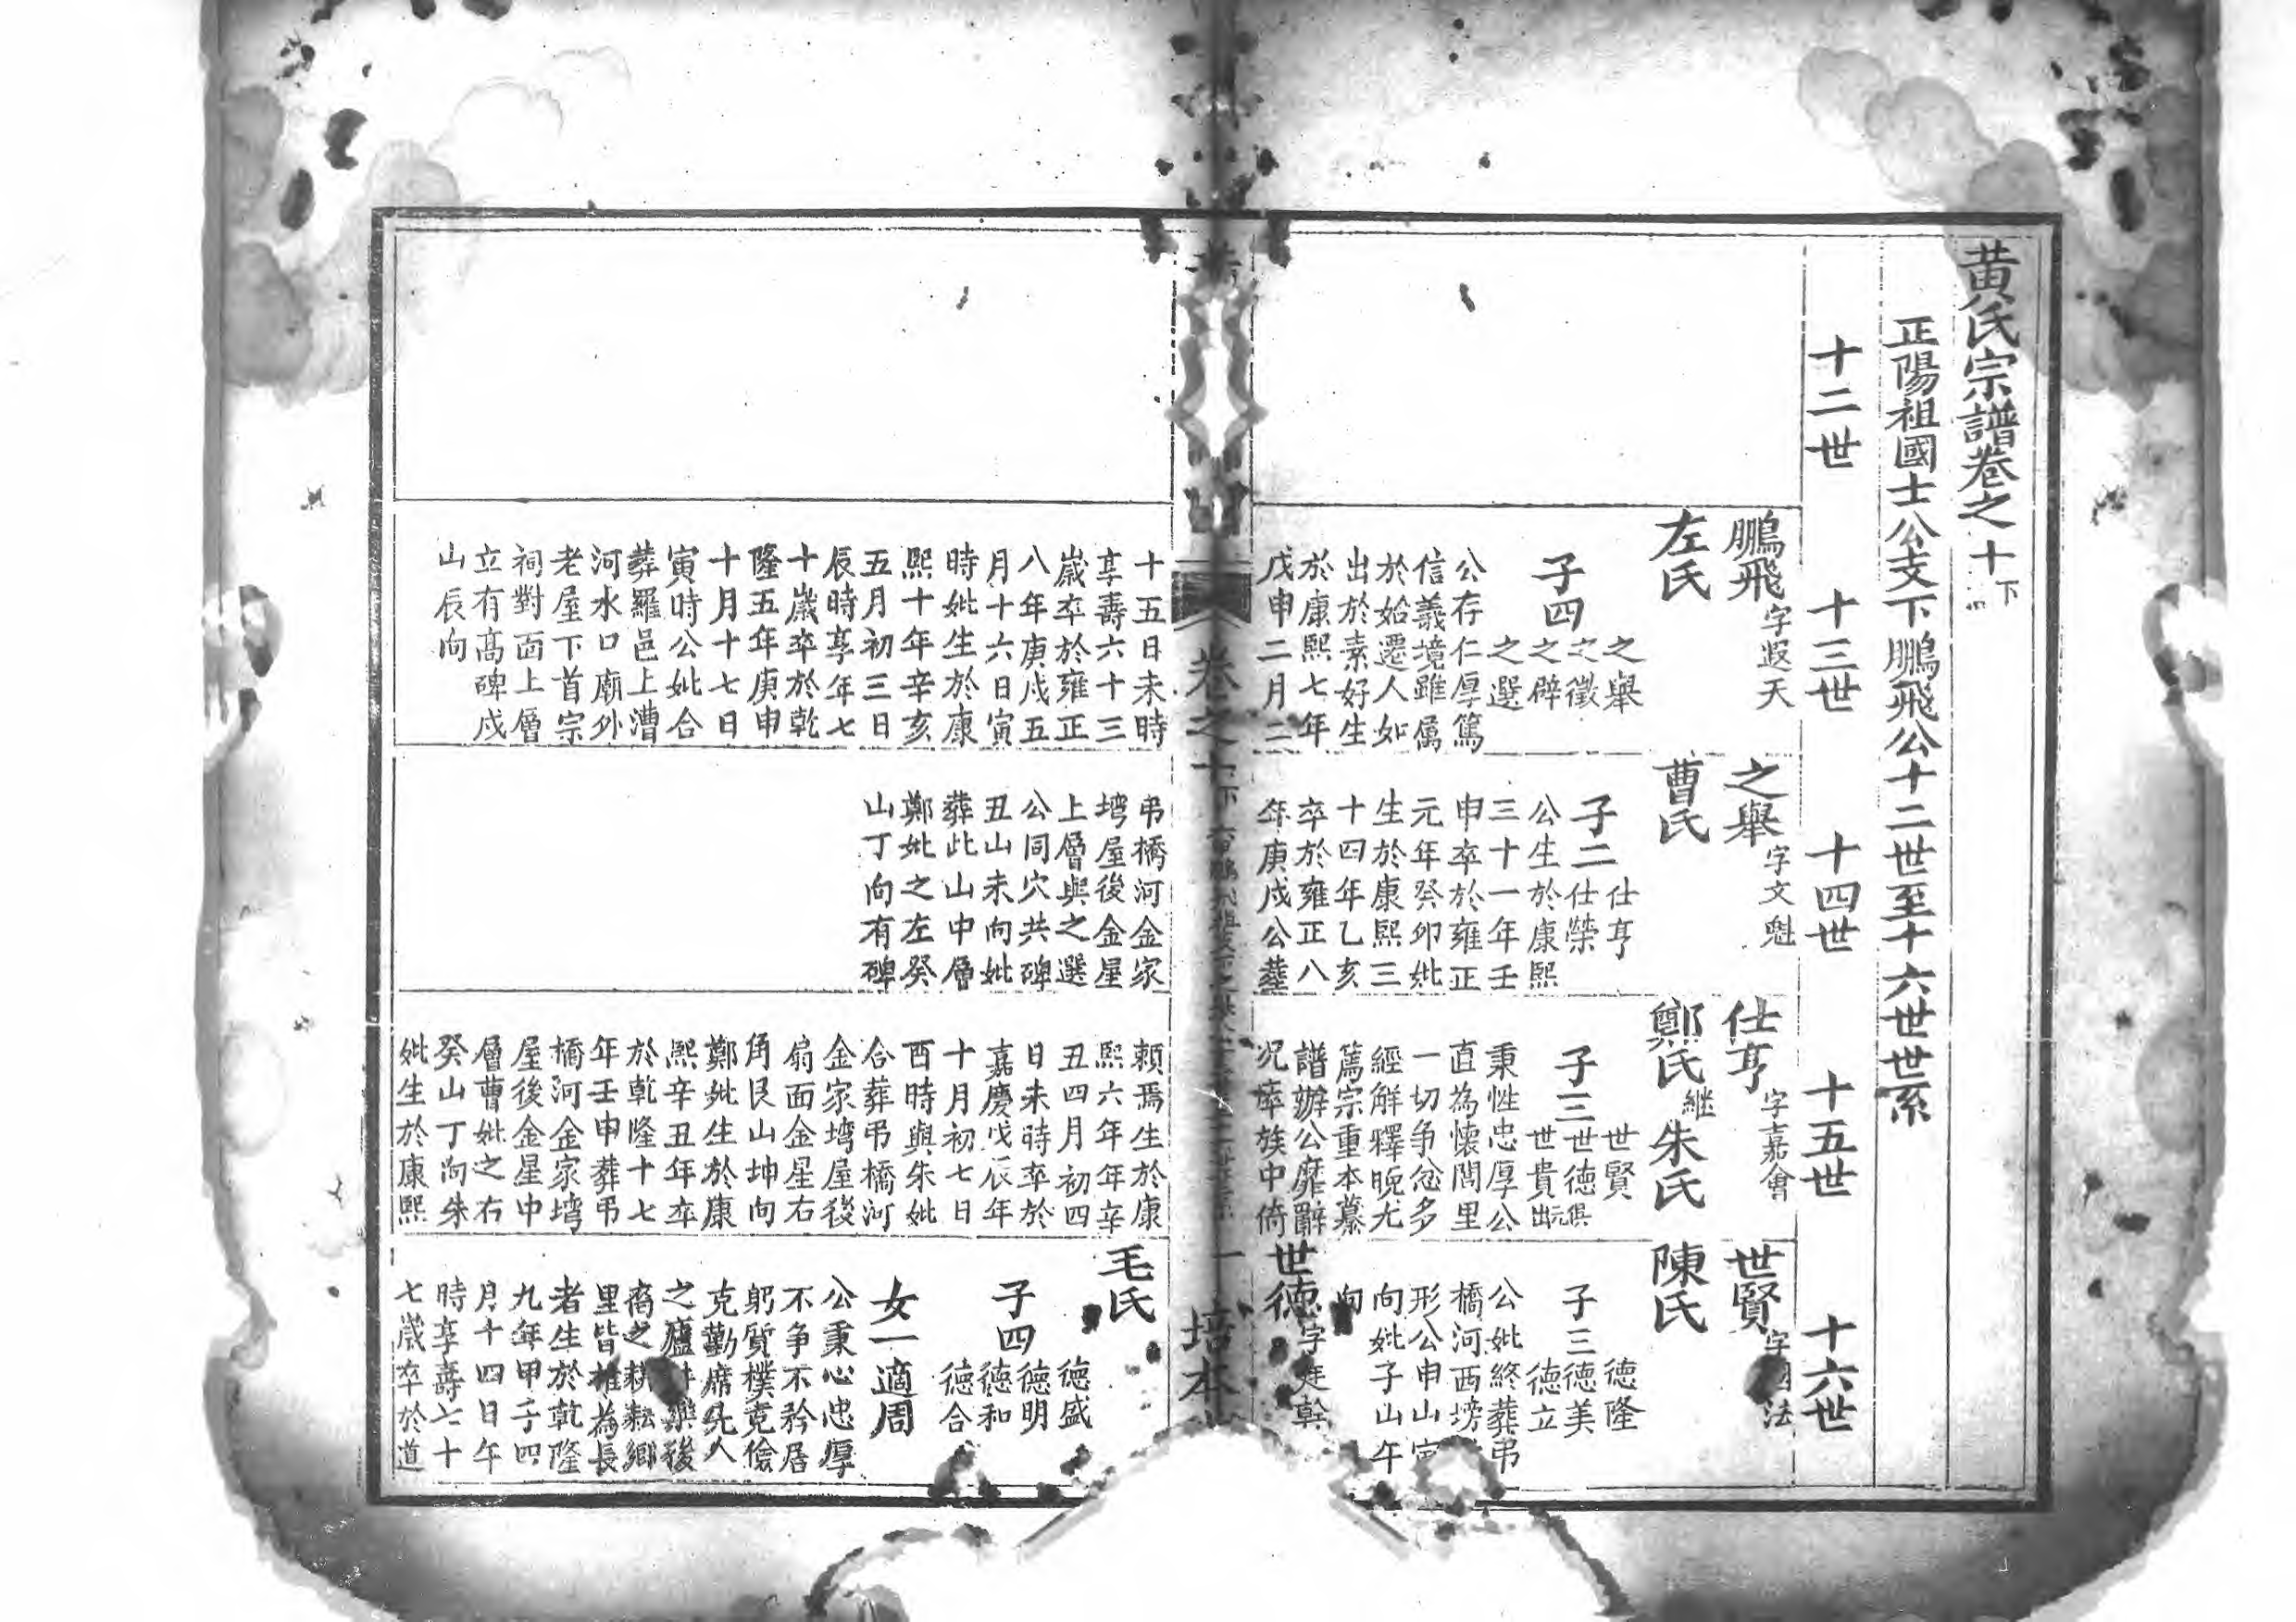 黄氏宗譜卷之十下
正陽祖國士公支下鵬飛公十二世至十六世世系
十二世
十三世
十四世
十五世
十六世
鵬飛字遐天
左氏
子四
之舉
之徵
之辟
之選
公存仁厚篤
信義境雖屬
於始遷人如
出於素好生
於康熙七年
戊申二月二
十五日未時
享壽六十三
歲卒於雍正
八年庚戍五
月十六日寅
時妣生於康
熙十年辛亥
五月初三日
辰時享年七
十歲卒於乾
隆五年庚申
十月十七日
寅時公妣合
葬羅邑上漕
河水口廟外
老屋下首宗
祠對面上層
立有高碑戍
山辰向
之舉字文魁
曹氏
子二
仕亨
仕榮
公生於康熙
三十一年壬
申卒於雍正
元年癸卯妣
生於康熙三
十四年乙亥
卒於雍正八
年庚戍公葬
弔橋河金家
塆屋後金星
上層與之選
公同穴共碑
丑山未向妣
葬此山中層
鄭妣之左癸
山丁向有碑
仕亨字嘉會
鄭氏繼朱氏
子三
世賢
世德俱
世貴元出
秉性忠厚公
直為懷閭里
一切争忿多
經解釋晚尤
篤宗重本纂
譜辦公靡辭
况率族中倚
賴焉生於康
熙六年年辛
丑四月初四
日未時卒於
嘉慶戊辰年
十月初七日
酉時與朱妣
合葬弔橋河
金家塆屋後
扇面金星右
角艮山坤向
鄭妣生於康
熙辛丑年卒
於乾隆十七
年壬申葬弔
橋河金家塆
屋後金星中
層曹妣之右
癸山丁向朱
妣生於康熙
世賢字國法
陳氏
子三
德隆
德美
德立
公妣終葬弔
橋河西塝
形公申山寅
向妣子山午
向
世德字廷幹
毛氏
子四
德盛
德明
德和
德合
女一適周
公秉心忠厚
不争不矜居
躬質樸克儉
克勤席先人
之廬後
裔之耕耘鄉
里皆推為長
者生於乾隆
九年甲子四
月十四日午
時享壽七十
七歲卒於道
卷之十下
一
培本